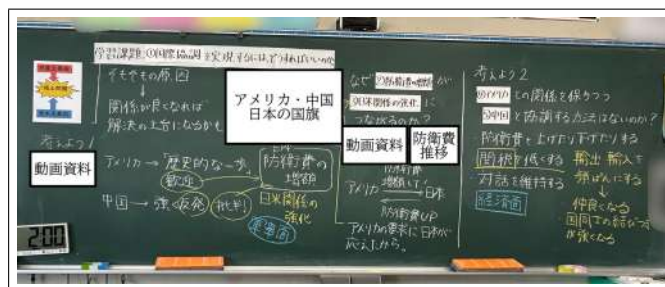 学習課題:①国際協調を実現するには、どうすればいいのか
そもそもの原因
↓
関係が良くなれば
解決の土台になるかも
考えよう1
動画資料
アメリカ→「歴史的な一歩」
歓迎
中国→強く反発 批判
アメリカ・中国
日本の国旗
防衛費の
増額
日米関係の
強化
軍事面
なぜ②防衛費の増額が
③日米関係の強化に
つながるのか?
動画資料
防衛費
推移
防衛費
増額して
アメリカ
日本
防衛費UP
アメリカの要求に日本が
応えたから。
考えよう2
④アメリカとの関係を保ちつつ
⑤中国と協調する方法はないのか?
防衛費を上げたり下げたりする
関税を低くする
輸出輸入を
頻ぱんにする
・対話を維持する
↓
仲良くなる
・国同士の結びつき
が強くなる
経済面
2:00